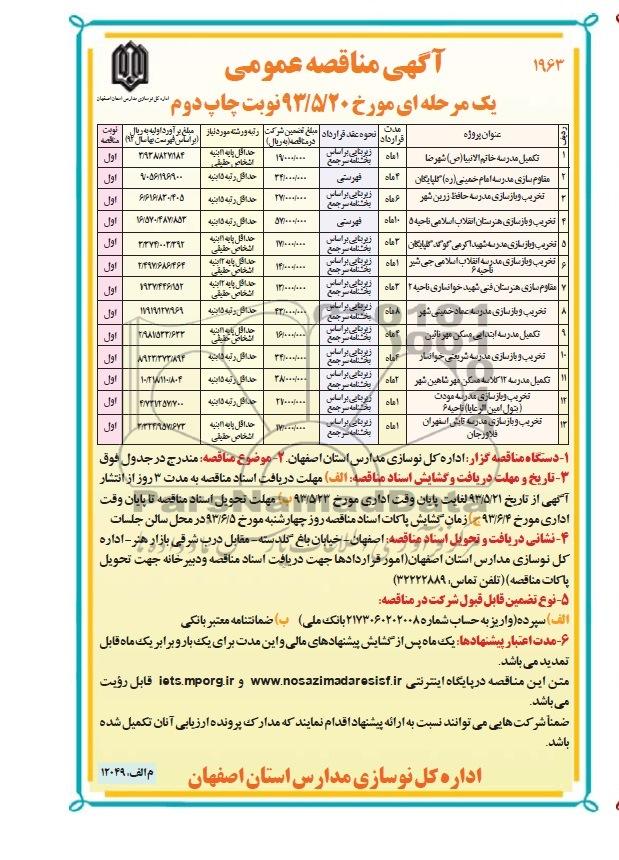 ۱۹۶۳
آگهی مناقصه عمومی
یک مرحله ای مورخ ۹۳/۵/۲۰ نوبت چاپ دوم
اداره کل نوسازی مدارس استان اصفهان
ردیف عنوان پروژه مدت قرارداد نحوه عقد قرارداد مبلغ تضمین شرکت در مناقصه (به ریال) رتبه و رشته مورد نیاز مبلغ برآورد اولیه به ریال (بر اساس فهرست بها سال ۹۳) نوبت مناقصه
۱ تکمیل مدرسه خاتم الانبیا (ص) شهرضا ۱ماه زیربنایی بر اساس بخشنامه سرجمع ۱۹/۰۰۰/۰۰۰ حداقل پایه ۱ ابنیه اشخاص حقیقی ۳/۹۳۸۸۲۷/۱۸۴ اول
۲ مقاوم سازی مدرسه امام خمینی (ره) گلپایگان ۴ماه فهرستی ۳۴/۰۰۰/۰۰۰ حداقل رتبه ۵ ابنیه ۹/۰۵۶۱۹۶۹۰۰ اول
۳ تخریب و بازسازی مدرسه حافظ زرین شهر ۶ماه زیربنایی بر اساس بخشنامه سرجمع ۲۷/۰۰۰/۰۰۰ حداقل رتبه ۵ ابنیه ۶/۶۱۶/۸۳۰/۴۰۵ اول
۴ تخریب و بازسازی هنرستان انقلاب اسلامی ناحیه ۵ ۱۰ماه فهرستی ۵۷/۰۰۰/۰۰۰ حداقل رتبه ۵ ابنیه ۱۶/۵۷۰/۴۸۷/۸۵۳ اول
۵ تخریب و بازسازی مدرسه شهید اکرمی گوگد گلپایگان ۳ماه زیربنایی بر اساس بخشنامه سرجمع ۱۷/۰۰۰/۰۰۰ حداقل پایه ۱ ابنیه اشخاص حقیقی ۳/۳۷۴/۰۰۳/۳۹۲ اول
۶ تخریب و بازسازی مدرسه انقلاب اسلامی جی شیر ناحیه ۶ ۱ماه زیربنایی بر اساس بخشنامه سرجمع ۱۴/۰۰۰/۰۰۰ حداقل پایه ۱ ابنیه اشخاص حقیقی ۲/۴۹۷/۶۸۶/۴۶۴ اول
۷ مقاوم سازی هنرستان فنی شهید خوانساری ناحیه ۲ ۳ماه زیربنایی بر اساس بخشنامه سرجمع ۱۳/۰۰۰/۰۰۰ حداقل پایه ۲ ابنیه اشخاص حقیقی ۱۹۳۷/۴۴۶۱۵۲ اول
۸ تخریب و بازسازی مدرسه عماد خمینی شهر ۸ماه زیربنایی بر اساس بخشنامه سرجمع ۴۳/۰۰۰/۰۰۰ حداقل رتبه ۵ ابنیه ۱۱۹۱۹۱۲۷۹۶۹ اول
۹ تکمیل مدرسه ابتدایی مسکن مهر نائین ۴ماه زیربنایی بر اساس بخشنامه سرجمع ۱۶/۰۰۰/۰۰۰ حداقل پایه ۱ ابنیه اشخاص حقیقی ۲/۹۸۱/۵۳۳/۶۳۳ اول
۱۰ تخریب و بازسازی مدرسه شریعتی خوانسار ۴ماه زیربنایی بر اساس بخشنامه سرجمع ۳۴/۰۰۰/۰۰۰ حداقل رتبه ۵ ابنیه ۸۹۲۳/۳۷۳/۸۹۴ اول
۱۱ تکمیل مدرسه ۱۲ کلاسه مسکن مهر شاهین شهر ۲ماه زیربنایی بر اساس بخشنامه سرجمع ۳۸/۰۰۰/۰۰۰ حداقل رتبه ۵ ابنیه ۱۰/۲۱۸۱۱۰/۸۰۴ اول
۱۲ تخریب و بازسازی مدرسه مودت (بتول امین الرعایا) ناحیه ۶ ۱ماه زیربنایی بر اساس بخشنامه سرجمع ۲۷/۰۰۰/۰۰۰ حداقل رتبه ۵ ابنیه ۴/۷۳۱۲۵۷/۷۰۰ اول
۱۳ تخریب و بازسازی مدرسه تابش اسفهران فلاورجان ۱ماه زیربنایی بر اساس بخشنامه سرجمع ۱۷/۰۰۰/۰۰۰ حداقل پایه ۱ ابنیه اشخاص حقیقی ۳/۳۲۴۹۵۷/۶۷۳ اول
۱-دستگاه مناقصه گزار: اداره کل نوسازی مدارس استان اصفهان. ۲- موضوع مناقصه: مندرج در جدول فوق
۳-تاریخ و مهلت دریافت و گشایش اسناد مناقصه: الف) مهلت دریافت اسناد مناقصه به مدت ۳ روز از انتشار
آگهی از تاریخ ۹۳/۵/۲۱ لغایت پایان وقت اداری مورخ ۹۳/۵/۲۳ ب) مهلت تحویل اسناد مناقصه تا پایان وقت
اداری مورخ ۹۳/۶/۴ ج) زمان گشایش پاکات اسناد مناقصه روز چهارشنبه مورخ ۹۳/۶/۵ در محل سالن جلسات
۴- نشانی دریافت و تحویل اسناد مناقصه: اصفهان- خیابان باغ گلدسته- مقابل درب شرقی بازار هنر- اداره
کل نوسازی مدارس استان اصفهان (امور قراردادها جهت دریافت اسناد مناقصه ودبیرخانه جهت تحویل
پاکات مناقصه) (تلفن تماس: ۳۲۲۲۲۸۸۹)
۵-نوع تضمین قابل قبول شرکت در مناقصه:
الف) سپرده (واریز به حساب شماره ۲۱۷۳۰۶۰۲۰۲۰۰۸ بانک ملی) ب) ضمانتنامه معتبر بانکی
۶-مدت اعتبار پیشنهادها: یک ماه پس از گشایش پیشنهادهای مالی و این مدت برای یک بار و برابر یک ماه قابل
تمدید می باشد.
متن این مناقصه در پایگاه اینترنتی www.nosazimadaresisf.ir و iets.mporg.ir قابل رؤیت
می باشد.
ضمناً شرکت هایی می توانند نسبت به ارائه پیشنهاد اقدام نمایند که مدارک پرونده ارزیابی آنان تکمیل شده
باشد.
اداره کل نوسازی مدارس استان اصفهان
م الف، ۱۲۰۴۹